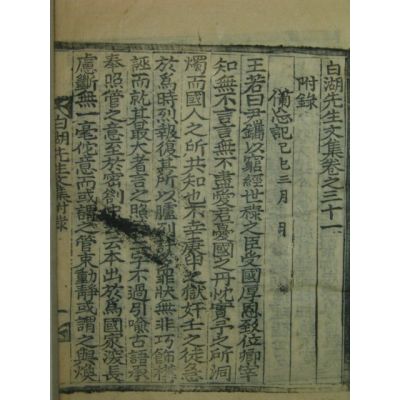 白湖先生文集卷之三十一
附錄
備忘記 己巳三月 日
王若曰尹鑴以窮經世祿之臣受國厚恩致位卿宰
知無不言言無不盡愛君憂國之丹忱實予之所洞
燭而國人之所共知也不幸庚申之獄奸壬之徒急
於爲時列報復其所以臚列罪狀無非巧飾構
誣而就其最大者言之照不過引喩古語承
奉照管之意至於密劄云本出於爲國家深長
慮斷無一毫他意而或謂之管束動靜或謂之與煥
白湖先生文集附錄 一